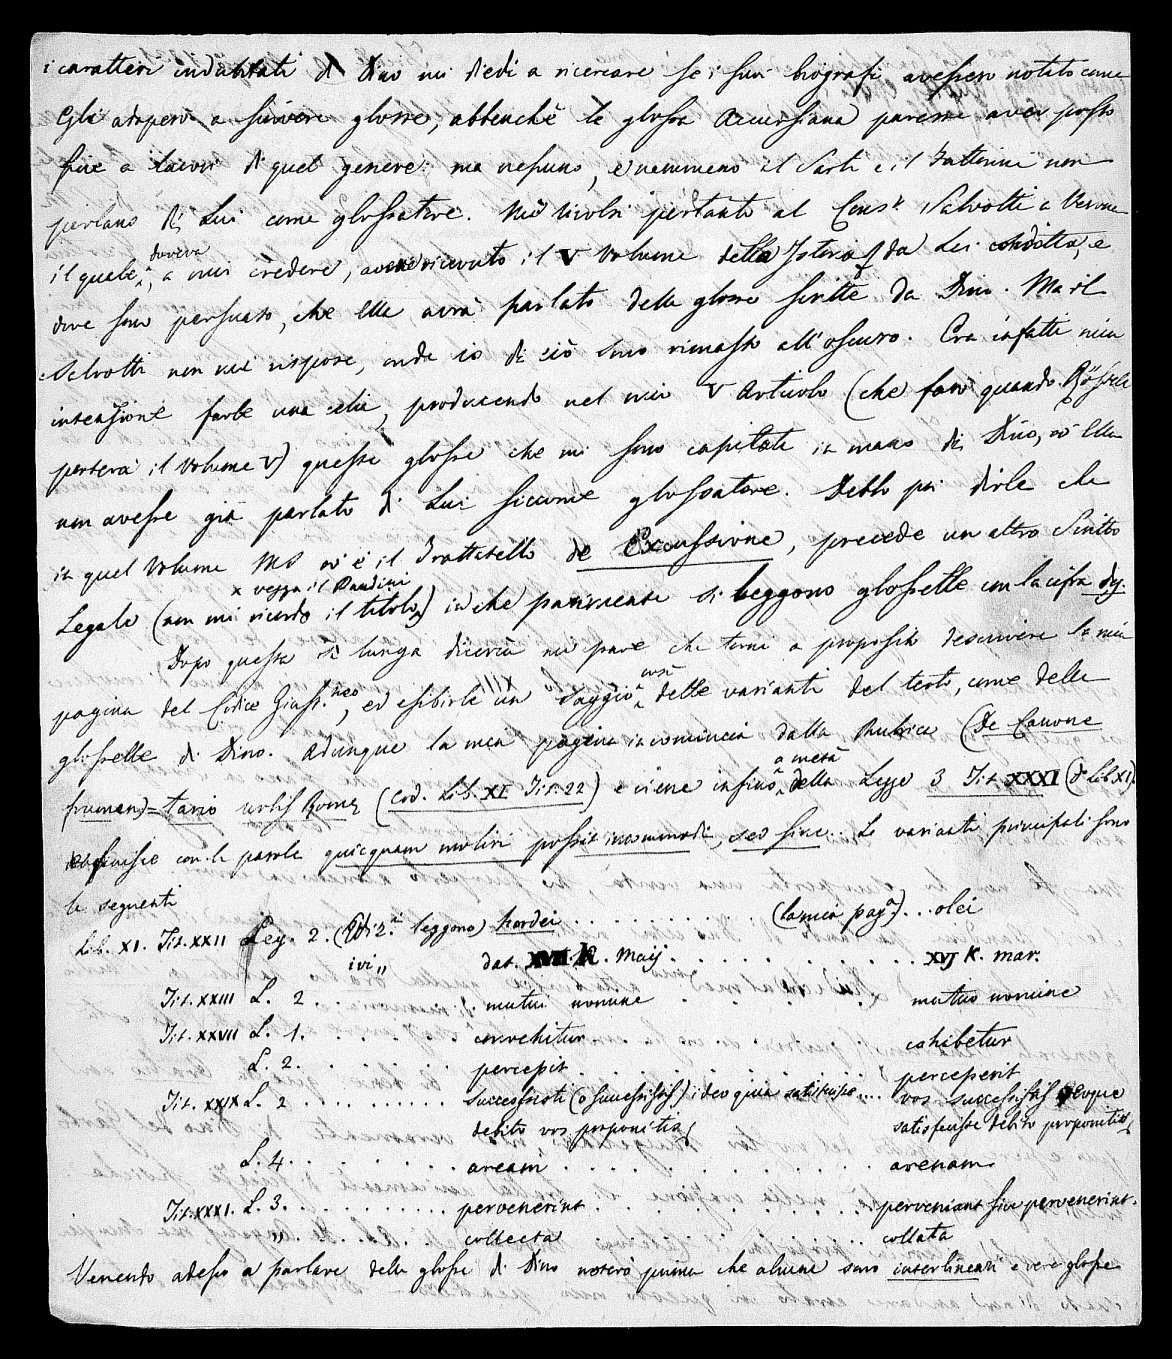 i caratteri indubitati di Dino mi diedi a ricercare se i suoi biografi avessero notato come
Egli adoperò a scrivere glosse, abbenchè la glossa Accursiana paresse aver posto
fine a lavori di quel genere: ma nessuno, e nemmeno il Sarti e il Fattorini non
parlano di Lui come glossatore. Mi rivolsi pertanto al Cons.r Salvotti a Verona
il quale, doveva a mio credere, aver ricevuto il V Volume della Istoria da Lei condotta, e
dove sono persuaso, che Ella avrà parlato delle glosse scritte da Dino. Ma il
Salvotti non mi rispose, onde io di ciò sono rimasto all'oscuro. Era infatti mia
intenzione farle una celia, producendo nel mio V Articolo (che farò quando
porterà il Volume V) queste glosse che mi sono capitate in mano di Dino, ov' Ella
non avesse già parlato di Lui siccome glossatore. Debbo poi dirle che
in quel Volume MS ov' è il Trattatello de Excussione, precede un altro scritto
x vegga il Bandini
Legale (non mi ricordo il titolo x) in che parimente si leggono glosselle con la cifra dy.
Dopo questa sì lunga diceria mi pare che torni a proposito descrivere la mia
pagina del Codice Giust.neo, ed esibirle un saggio così delle varianti del testo, come delle
glosselle di Dino. Adunque la mia pagina incomincia dalla Rubrica (De Canone
frumentario urbis Romę (Cod. Lib. XI Tit. 22) e viene infino a metà della Legge 3 Tit. XXXI (d. Lib. XI)
e finisce con le parole quicquam moliri possit incommodi, seo sine. Le varianti principali sono
le seguenti
Lib. XI. Tit. XXII Leg. 2. (Ediz.ni leggono) hordei . . . . . . . . . . (la mia pag.a) . . . olei
ivi „ dat. XVII. K. Maij . . . . . . . . . . XVJ K. mar.
Tit. XXIII L. 2 . . . . . . mutui nomine . . . . . . mutuo nomine
Tit. XXVII L. 1. . . . . . . convehitur cohibetur
L. 2. . . . . . . percepit . . . . . . . . . . perceperit
Tit. XXIX L. 2 . . . . . . . . . successisti (o successistis) ideo quia satisfecisse . . . . vos successistis eoque
debito vos proponitis satisfecisse debito proponitis
L. 4. . . . . . . . aream . . . . . . . . . . . . arenam
Tit. XXXI. L. 3. . . . . . . . . . pervenerint . . . . . . . . . . perveniant sive pervenerint.
„ . . . . . . . collecta . . . . . . . . . . collata
Venendo adesso a parlare delle glosse di Dino noterò prima che alcune sono interlineari e vere glosse